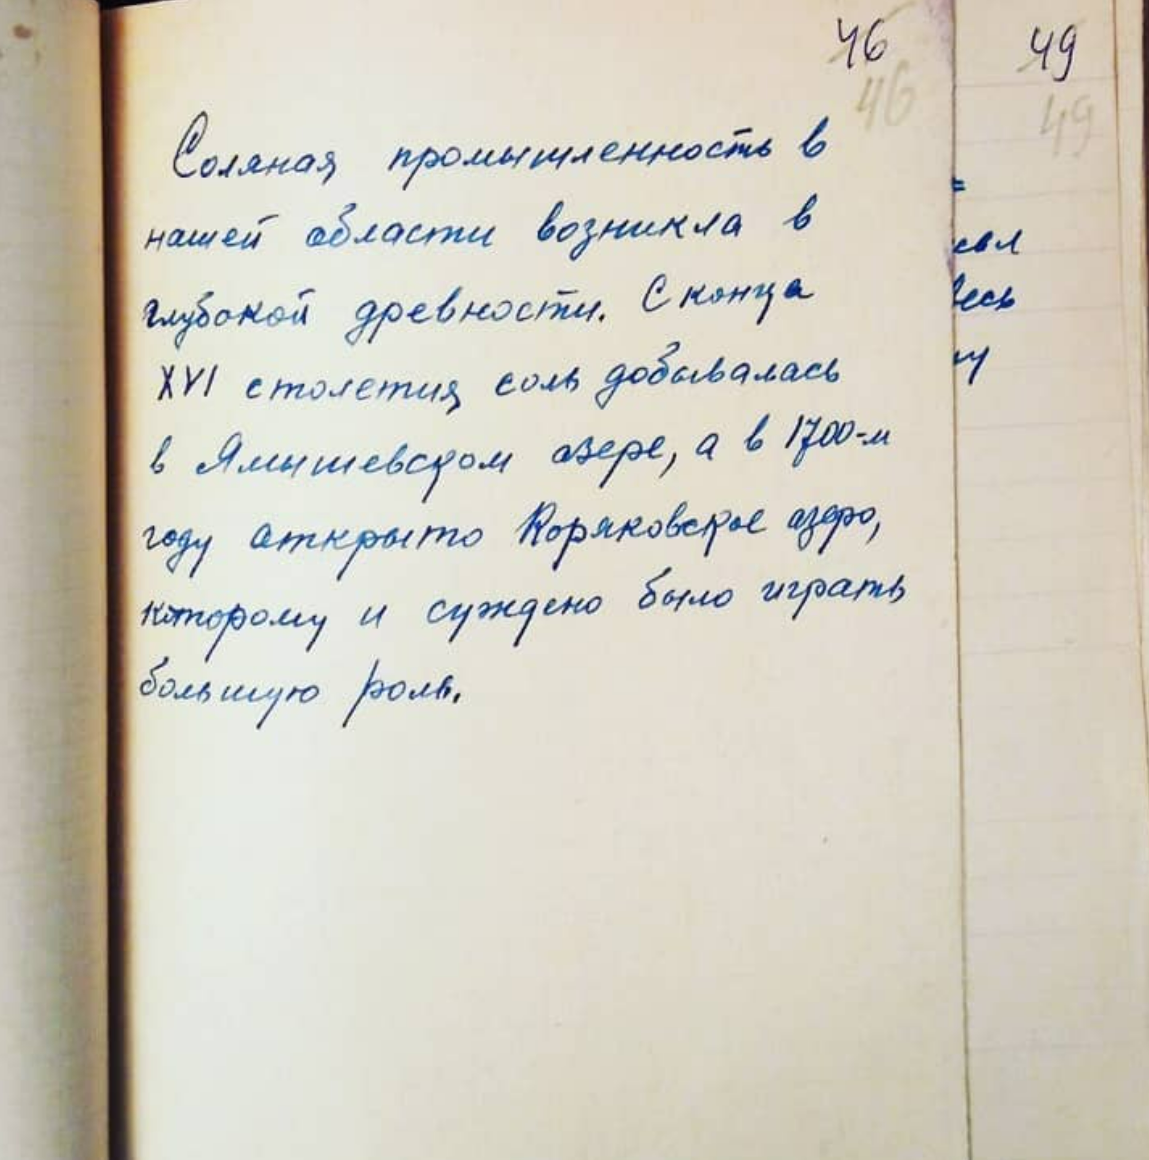 46 49
46 49
Соляная промышленность в
нашей области возникла в
глубокой древности. С конца
XVI столетия соль добывалась
в Ямышевском озере, а в 1700-м
году открыто Коряковское озеро,
которому и суждено было играть
большую роль.